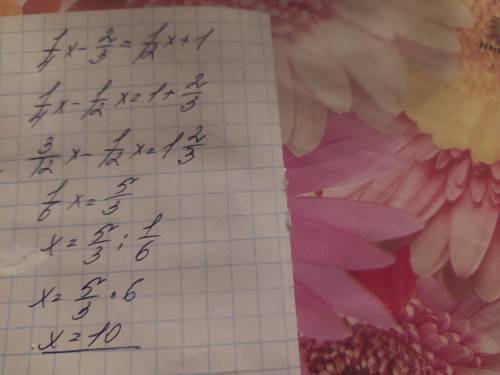 1/4 x - 2/3 = 1/12 x + 1
1/4 x - 1/12 x = 1 + 2/3
3/12 x - 1/12 x = 1 2/3
1/6 x = 5/3
x = 5/3 : 1/6
x = 5/3 · 6
x = 10